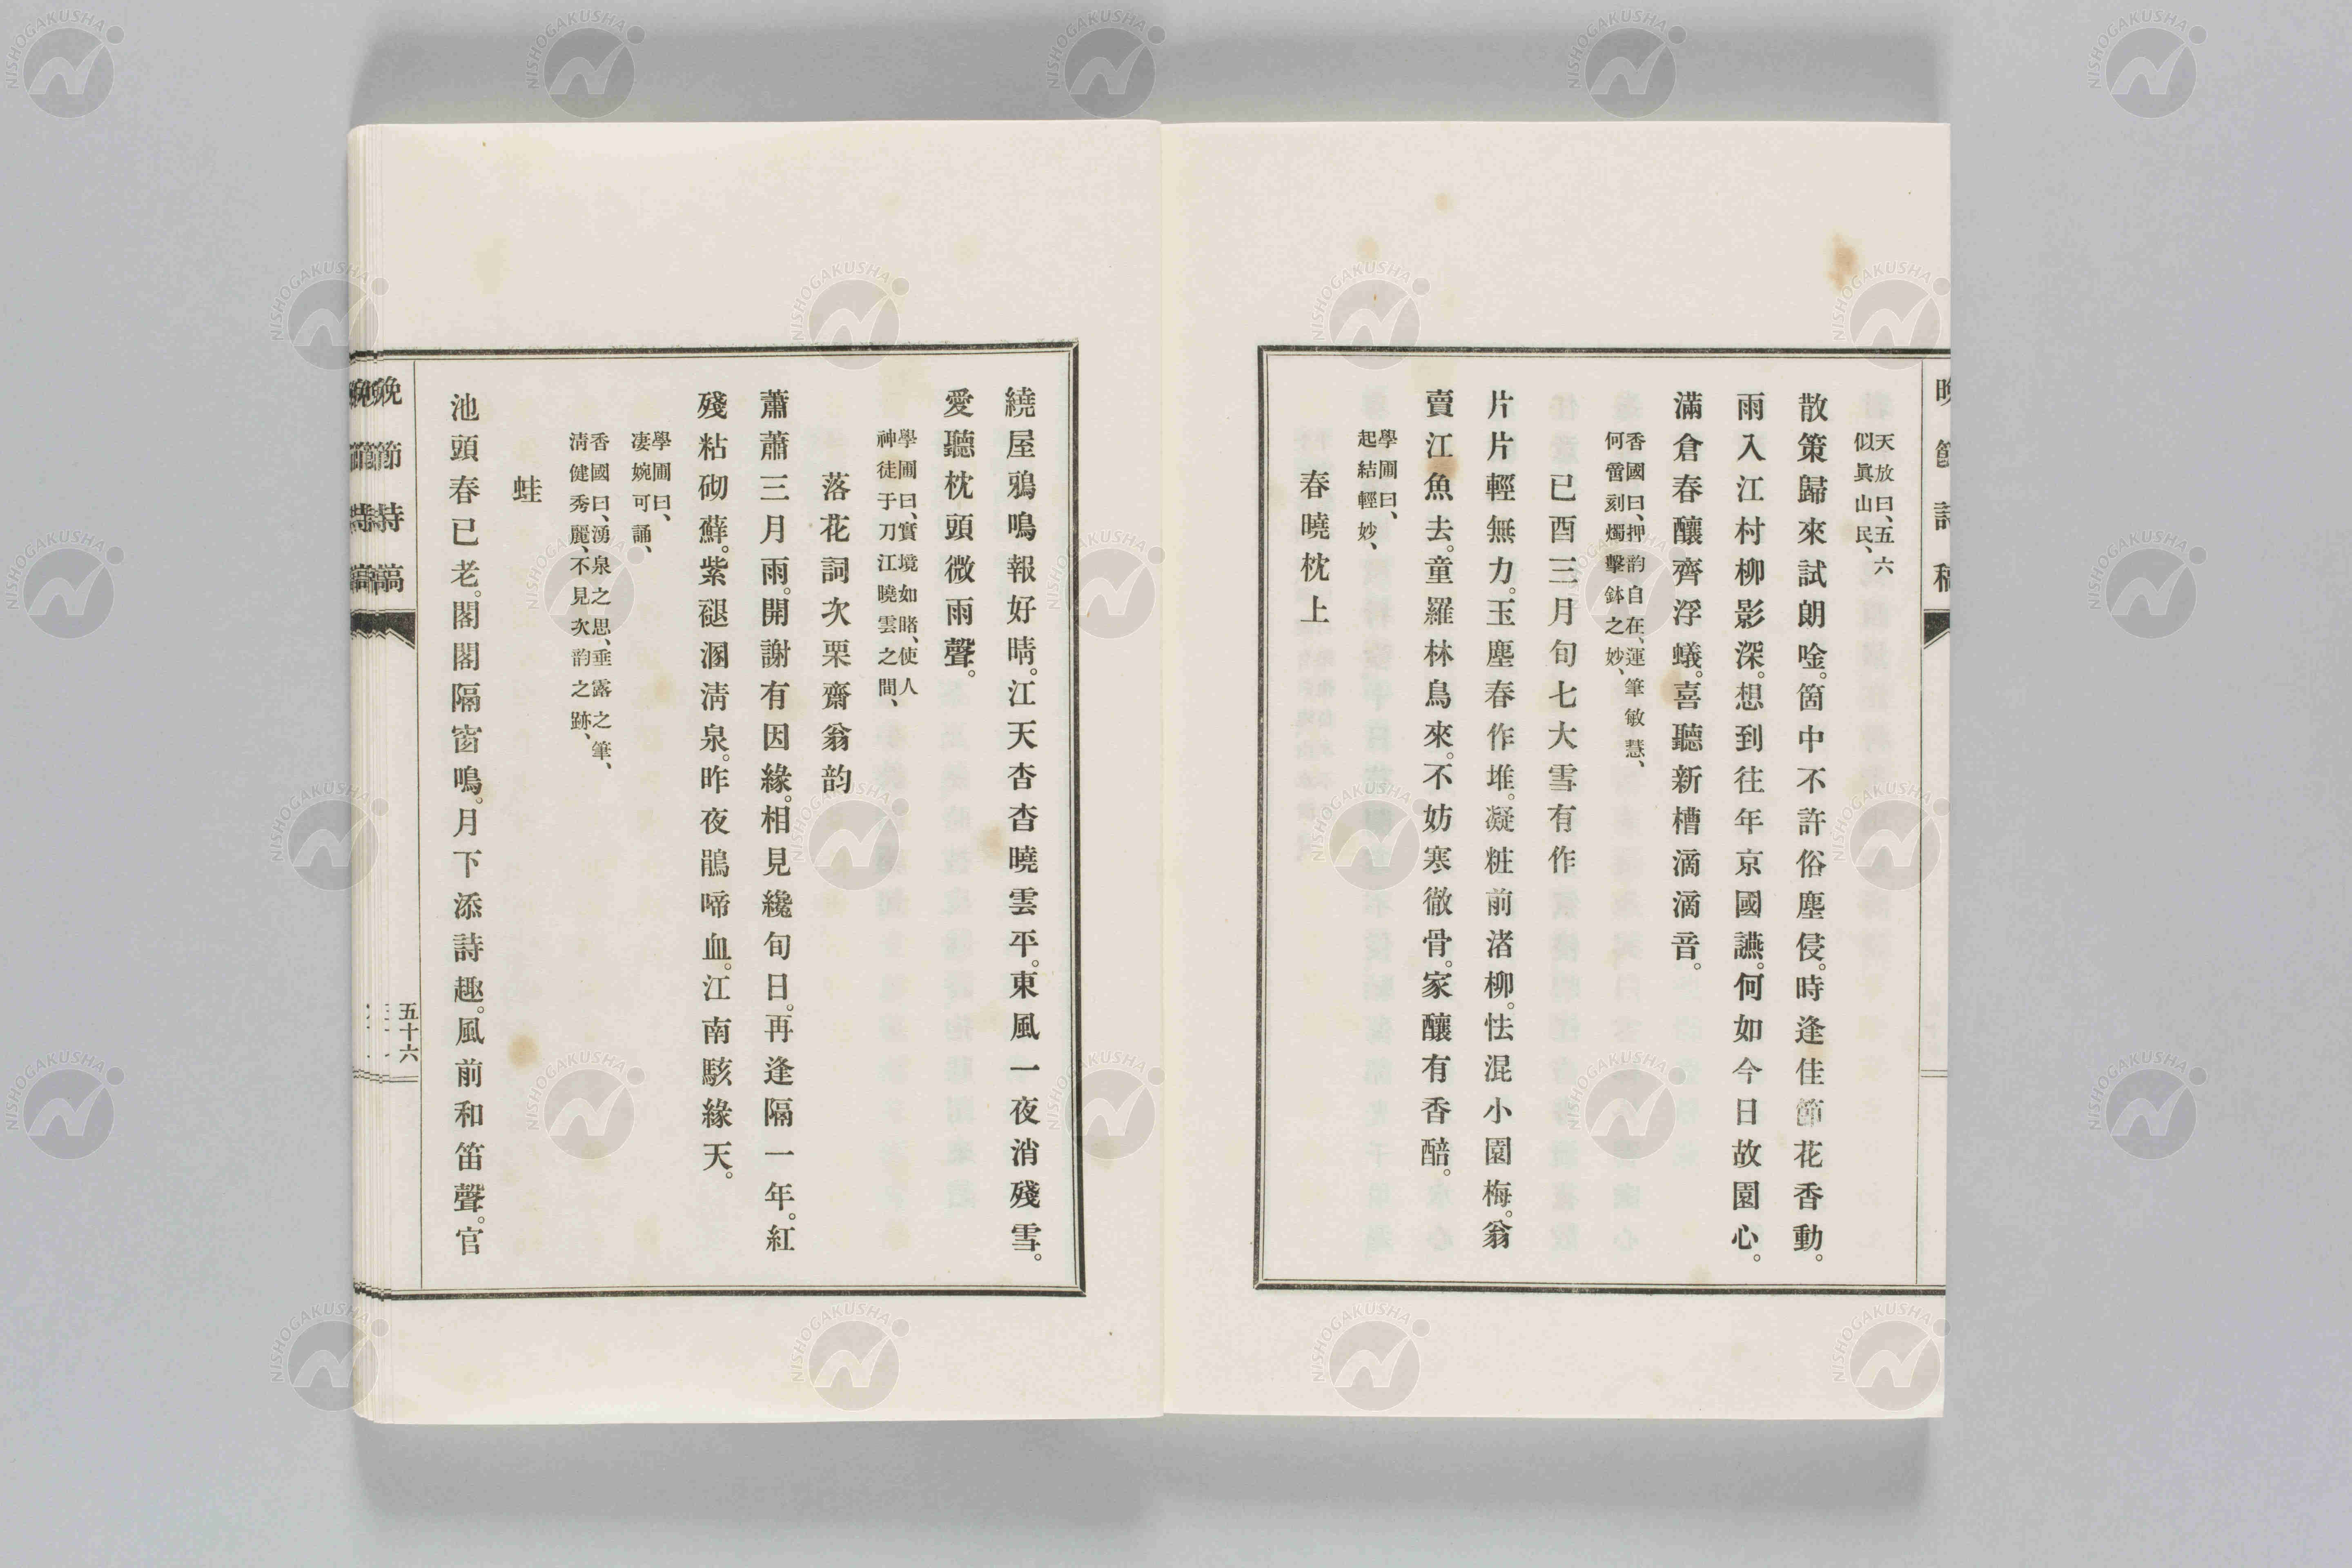 晚節詩稿
天放曰、五六
似眞山民、
散策歸來試朗唫。箇中不許俗塵侵。時逢佳節花香動。
雨入江村柳影深。想到往年京國讌。何如今日故園心。
滿倉春釀齊浮蟻。喜聽新槽滴滴音。
香國曰、押韵自在、運筆敏慧、
何啻刻燭擊鉢之妙、
已酉三月旬七大雪有作
片片輕無力。玉塵春作堆。凝粧前渚柳。怯混小園梅。翁
賣江魚去。童羅林鳥來。不妨寒徹骨。家釀有香醅。
學圃曰、
起結輕妙、
春曉枕上
繞屋鴉鳴報好晴。江天杳杳曉雲平。東風一夜消殘雪。
愛聽枕頭微雨聲。
學圃曰、實境如睹、使人
神徒于刀江曉雲之間、
落花詞次栗齋翁韵
蕭蕭三月雨。開謝有因緣。相見纔旬日。再逢隔一年。紅
殘粘砌蘚。紫褪溷淸泉。昨夜鵑啼血。江南駭綠天。
學圃曰、
凄婉可誦、
香國曰、湧泉之思、垂露之筆、
淸健秀麗、不見次韵之跡、
蛙
池頭春已老。閣閣隔窗鳴。月下添詩趣。風前和笛聲。官
晚節詩稿
五十六
NISHOGAKUSHA